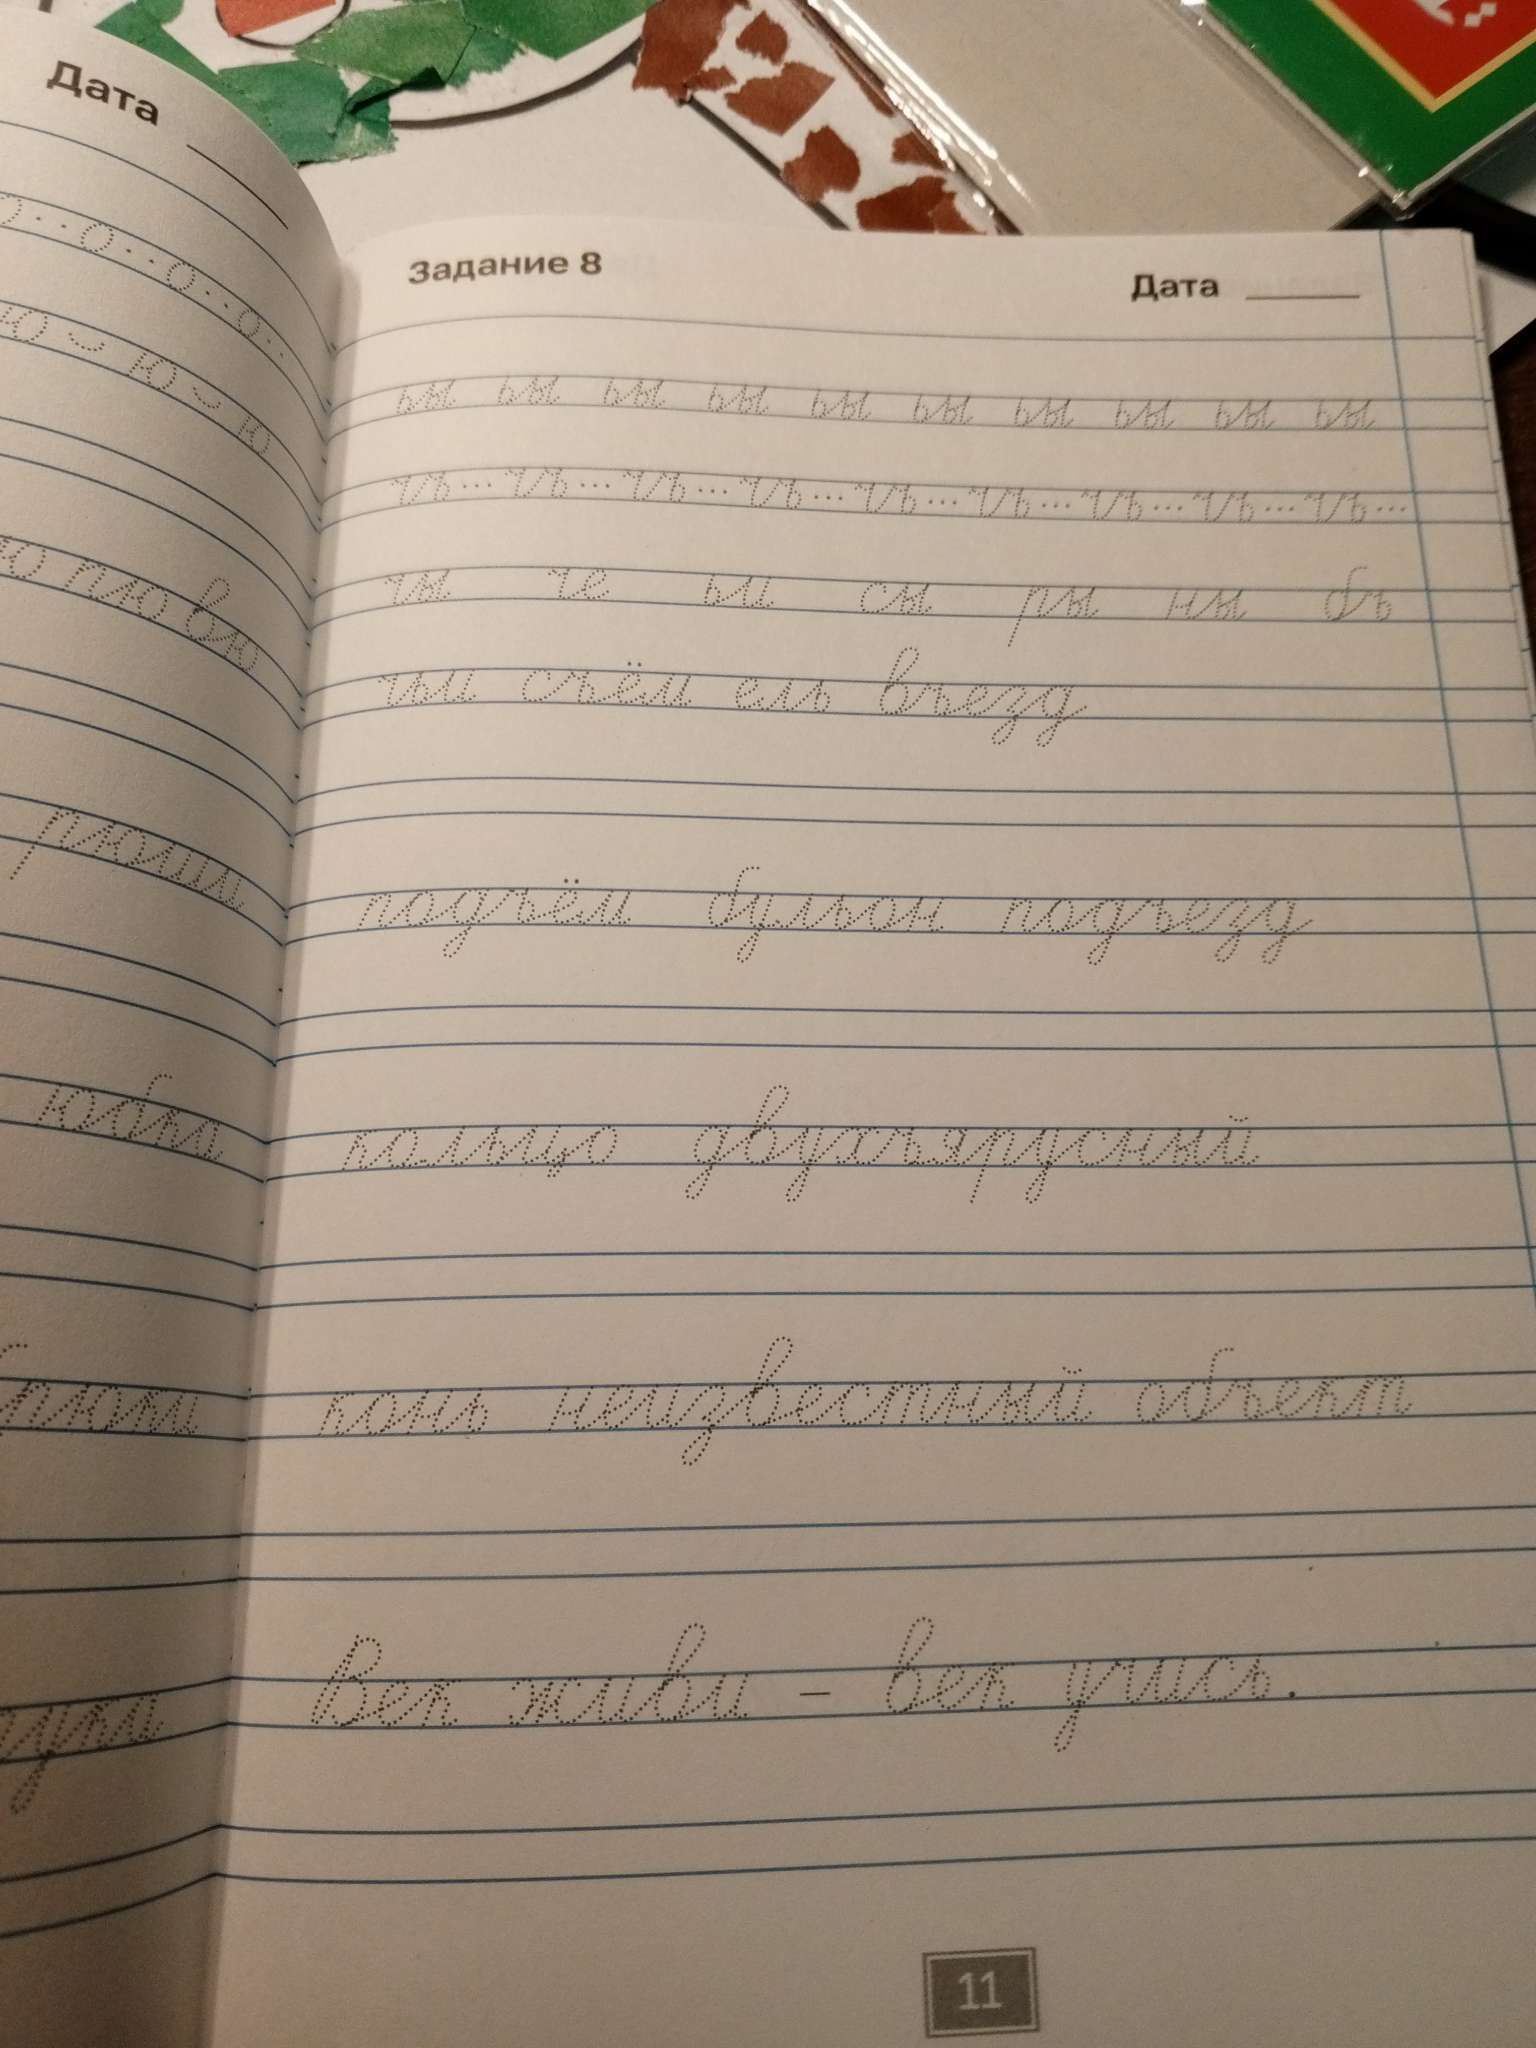 Дата
о . . о . . о . . о . .
ю ю ю
ю пю вю
рюши
юбки
брюки
Задание 8
Дата
ьы ьы ьы ьы ьы ьы ьы ьы ьы ьы
чъ ... чъ ... чъ ... чъ ... чъ ... чъ ... чъ ... чъ ... чъ ...
чы че ьи сы ры ны бъ
чьи съём ель въезд
подъём бульон подъезд
кольцо двухъярусный
конь неизвестный объект
Век живи – век учись.
11